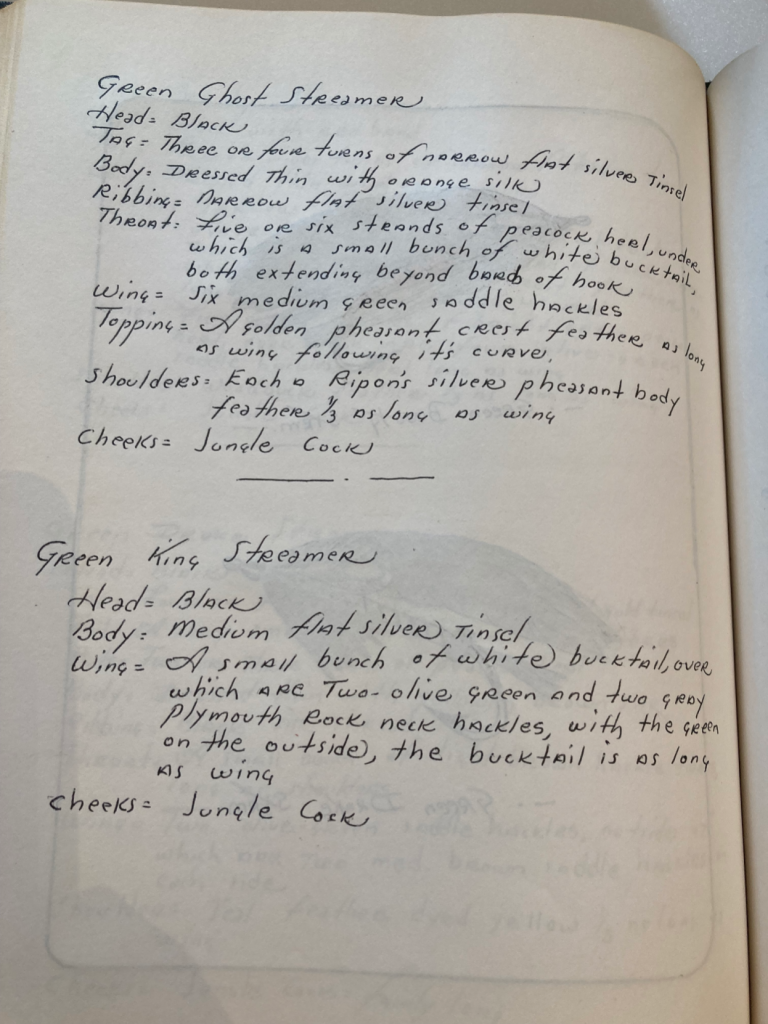 Green Ghost Streamer
Head= Black
Tag= Three or four turns of narrow flat silver Tinsel
Body= Dressed Thin with orange silk
Ribbing= Narrow flat silver tinsel
Throat= Five or six strands of peacock herl, under
which is a small bunch of white bucktail,
both extending beyond barb of hook
Wing= Six medium green saddle hackles
Topping= A golden pheasant crest feather as long
as wing following it's curve.
Shoulders= Each a Ripon's silver pheasant body
feather 1/3 as long as wing
Cheeks= Jungle Cock
Green King Streamer
Head= Black
Body= Medium flat silver Tinsel
Wing= A small bunch of white bucktail, over
which are Two-olive green and two gray
Plymouth Rock neck hackles, with the green
on the outside, the bucktail is as long
as wing
Cheeks= Jungle Cock